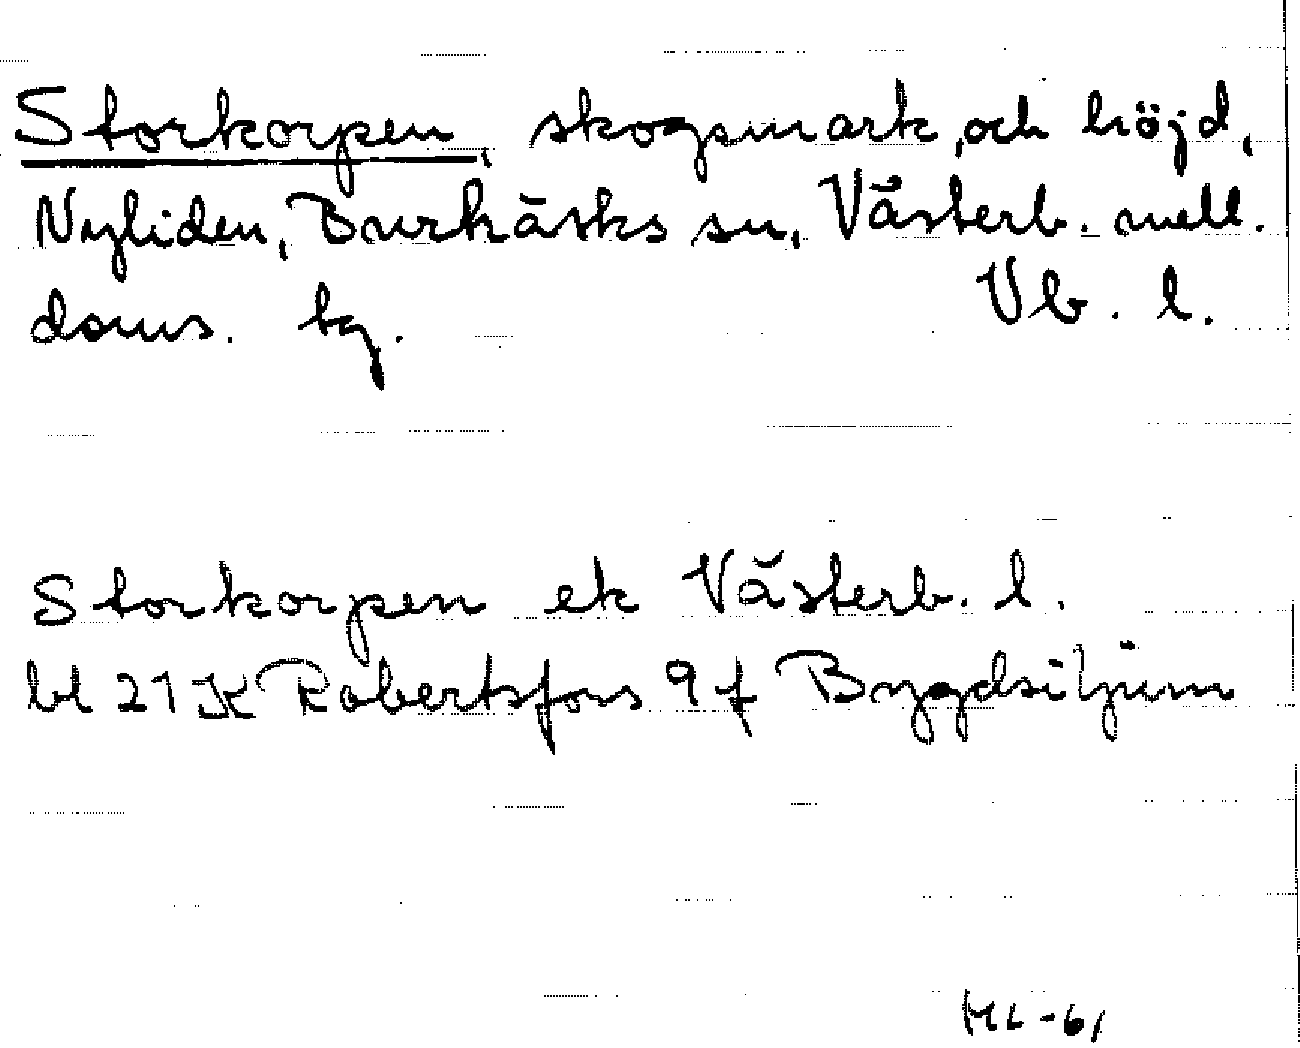 Storkorpen, skogsmark, och höjd,
Nyliden, Burträsks sn, Västerb. mell.
doms. tg. Vb. l.
Storkorpen ek Västerb. l.
bl 21 K Robertsfors 9 f Bygdsiljum
HL-61